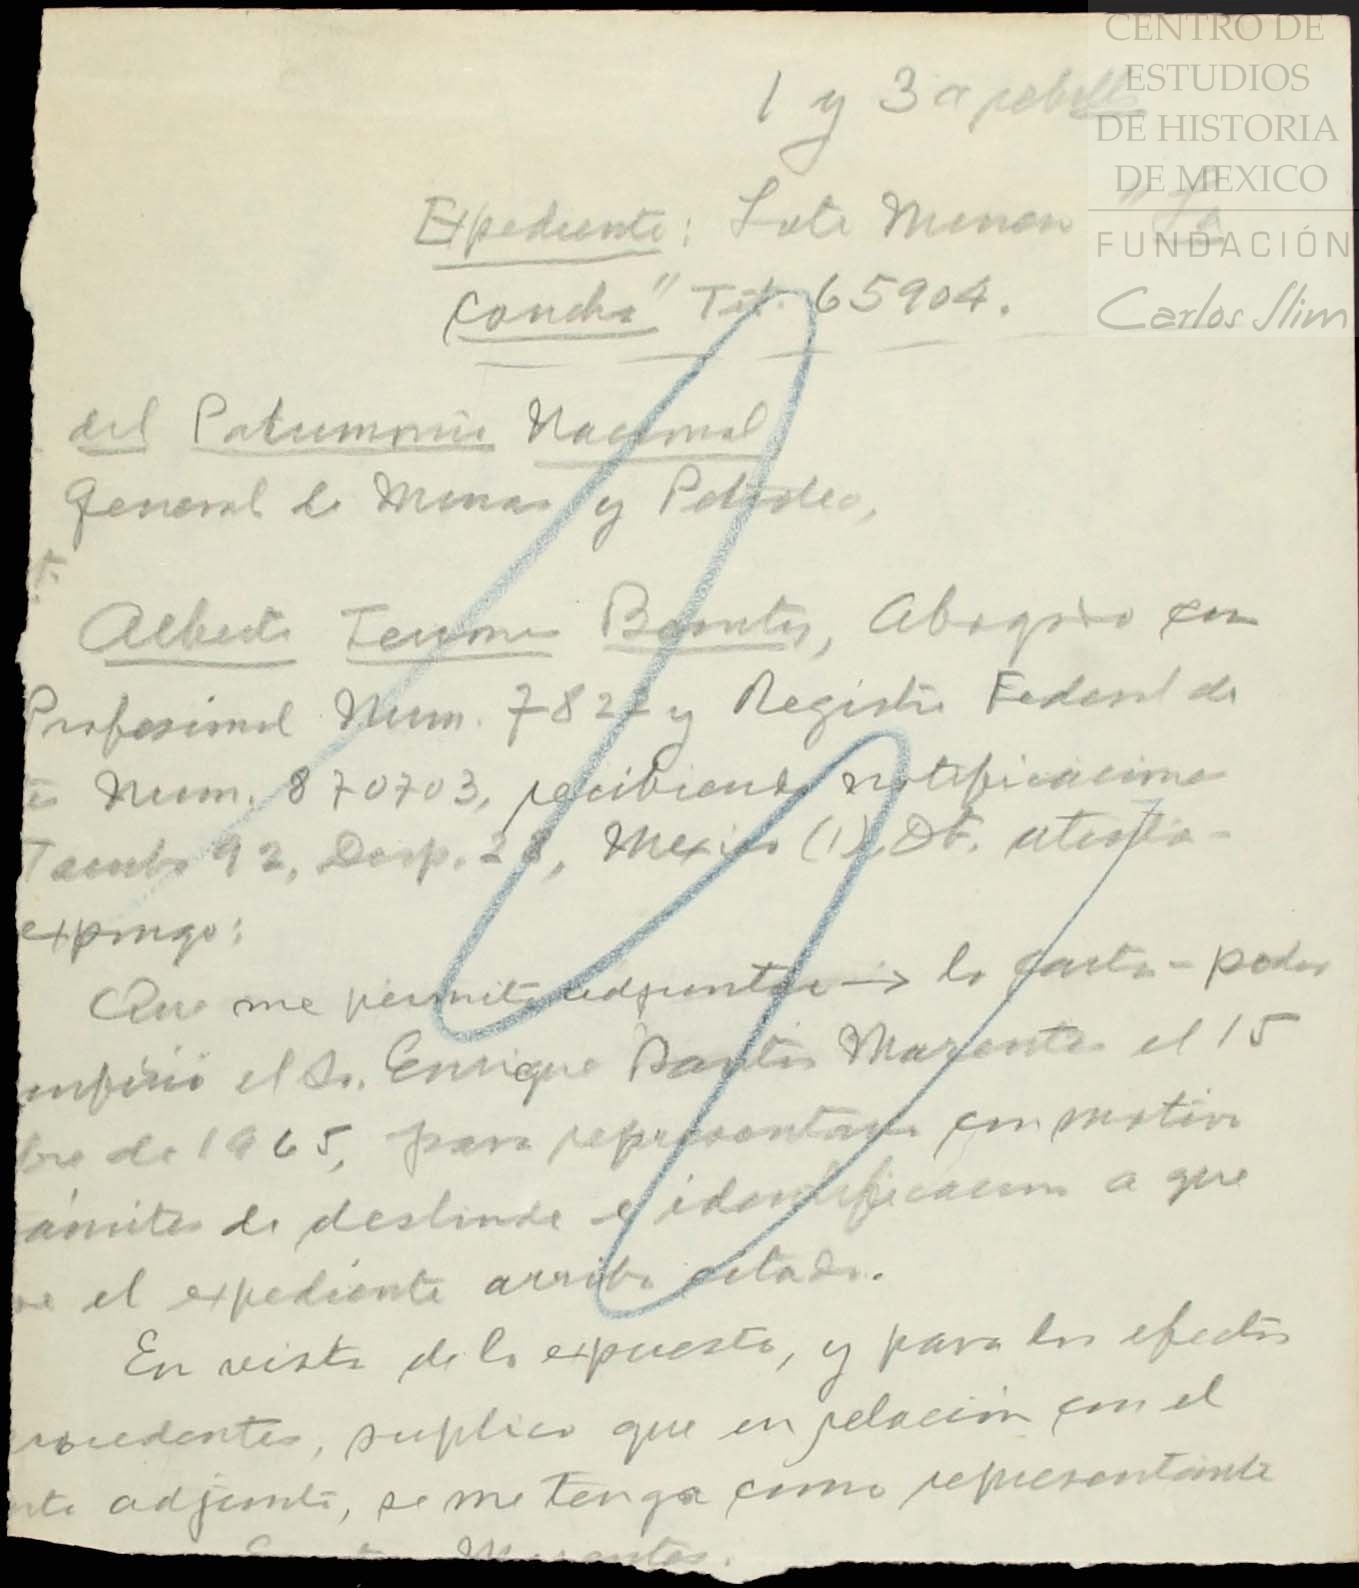 CENTRO DE
ESTUDIOS
DE HISTORIA
DE MEXICO
FUNDACIÓN
Carlos Slim
1 y 3
Expediente: Lote Minero "La
Concha" Tit. 65904.
del Patrimonio Nacional
General de Minas y Petróleo,
Alberto Terrones Benítez, Abogado con
Profesional Num. 7822 y Registro Federal de
Num. 870703, recibiendo notificaciones
Tacuba 92, Desp. 28, Mexico (1), D.F. atenta-
expongo:
Que me permito adjuntar → la carta-poder
el Sr. Enrique Santos Marantes el 15
bre de 1965, para representarlo con motivo
ámites de deslinde e identificacion a que
re el expediente arriba citado.
En vista de lo expuesto, y para los efectos
rocedentes, suplico que en relación con el
nto adjunto, se me tenga como representante
Marantes.